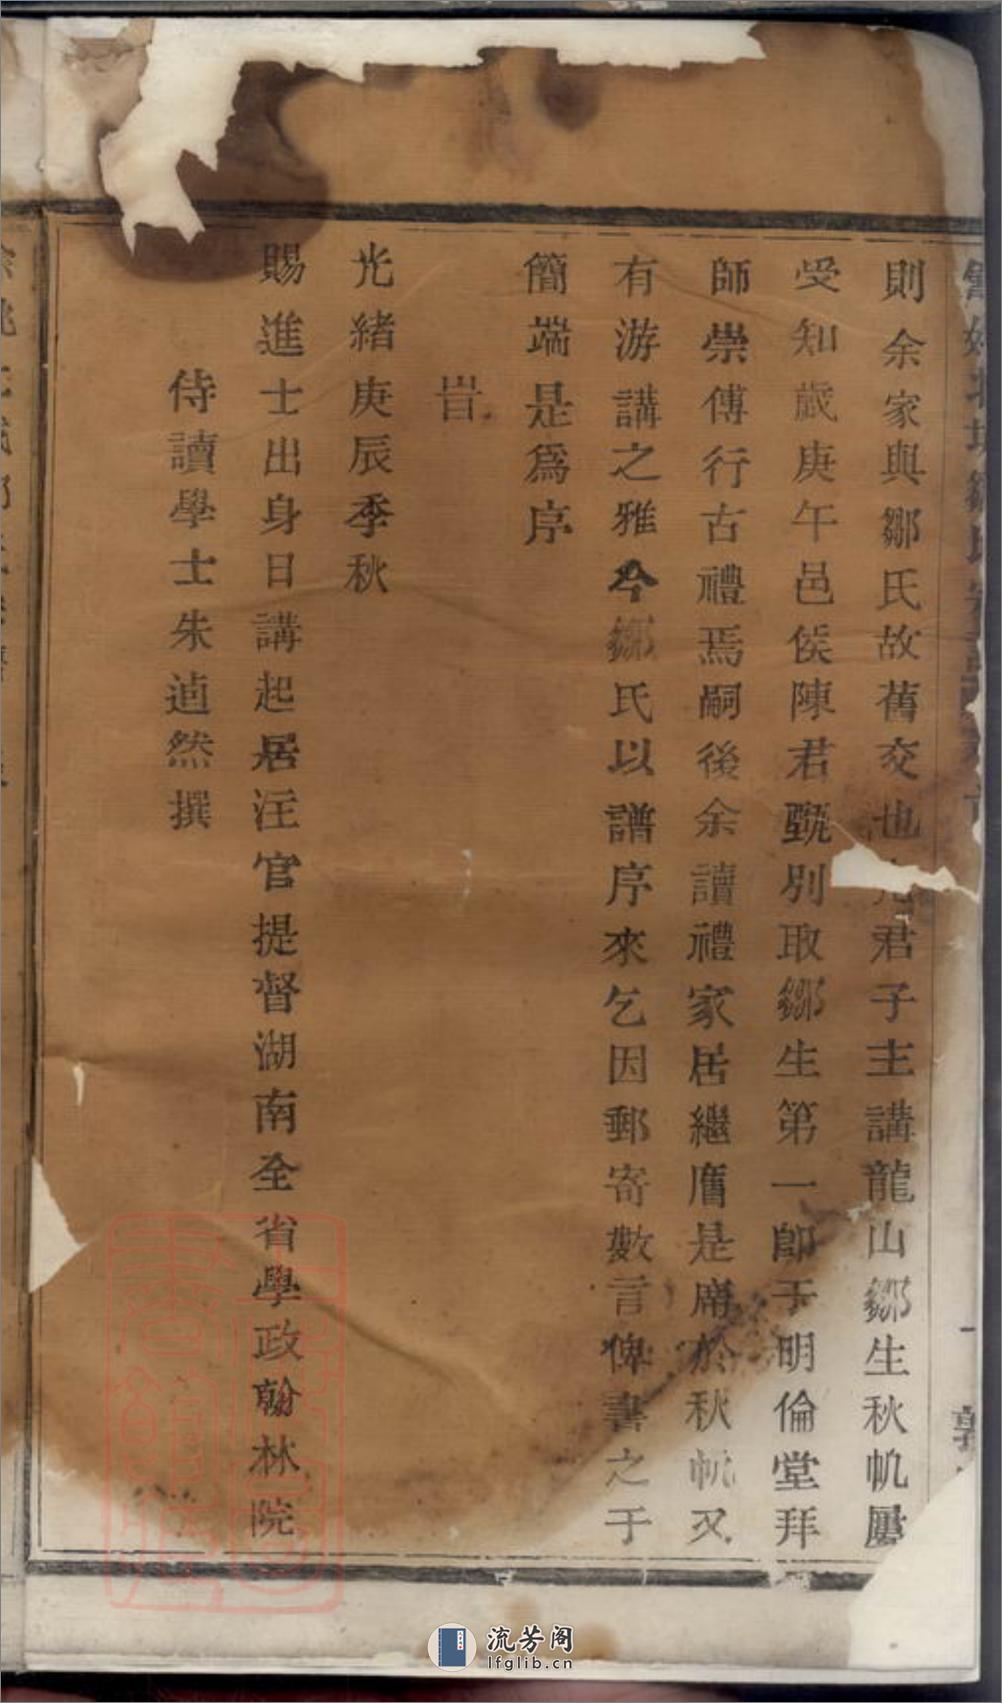 則余家與鄒氏故舊交也先君子主講龍山鄒生秋帆屢
受知歲庚午邑侯陳君甄別取鄒生第一卽于明倫堂拜
師崇傅行古禮焉嗣後余讀禮家居繼膺是席於秋帆又
有游講之雅今鄒氏以譜序來乞因郵寄數言俾書之于
簡端是爲序
旹
光緒庚辰季秋
賜進士出身日講起居注官提督湖南全省學政翰林院
侍讀學士朱逌然撰
流芳阁
lfglib.cn